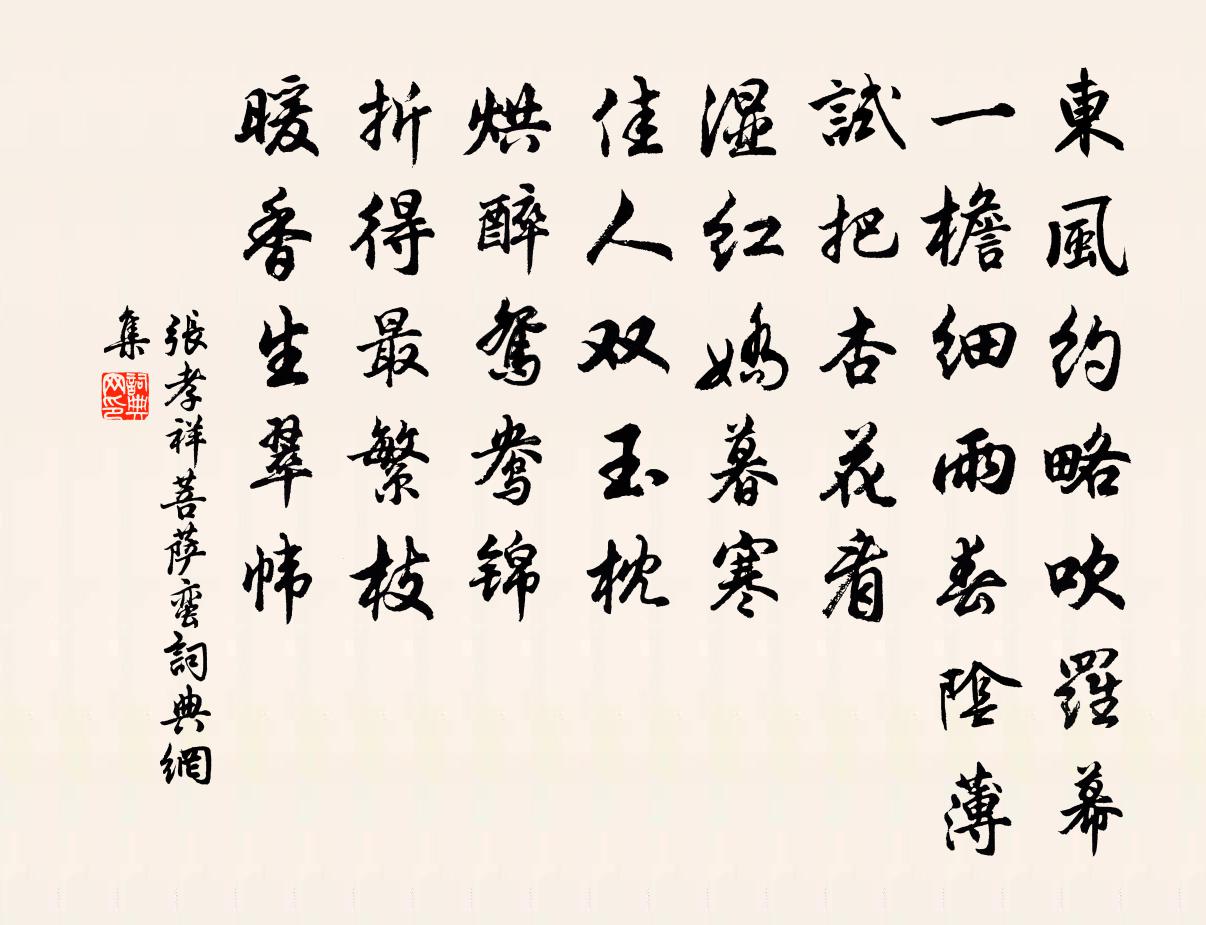 東風約略吹羅幕
一檐細雨春陰薄
試把杏花看
湿红嬌暮寒
佳人双玉枕
烘醉鴛鴦錦
折得最繁枝
暖香生翠幃
張孝祥菩薩蠻詞典網
集
詞典
网印